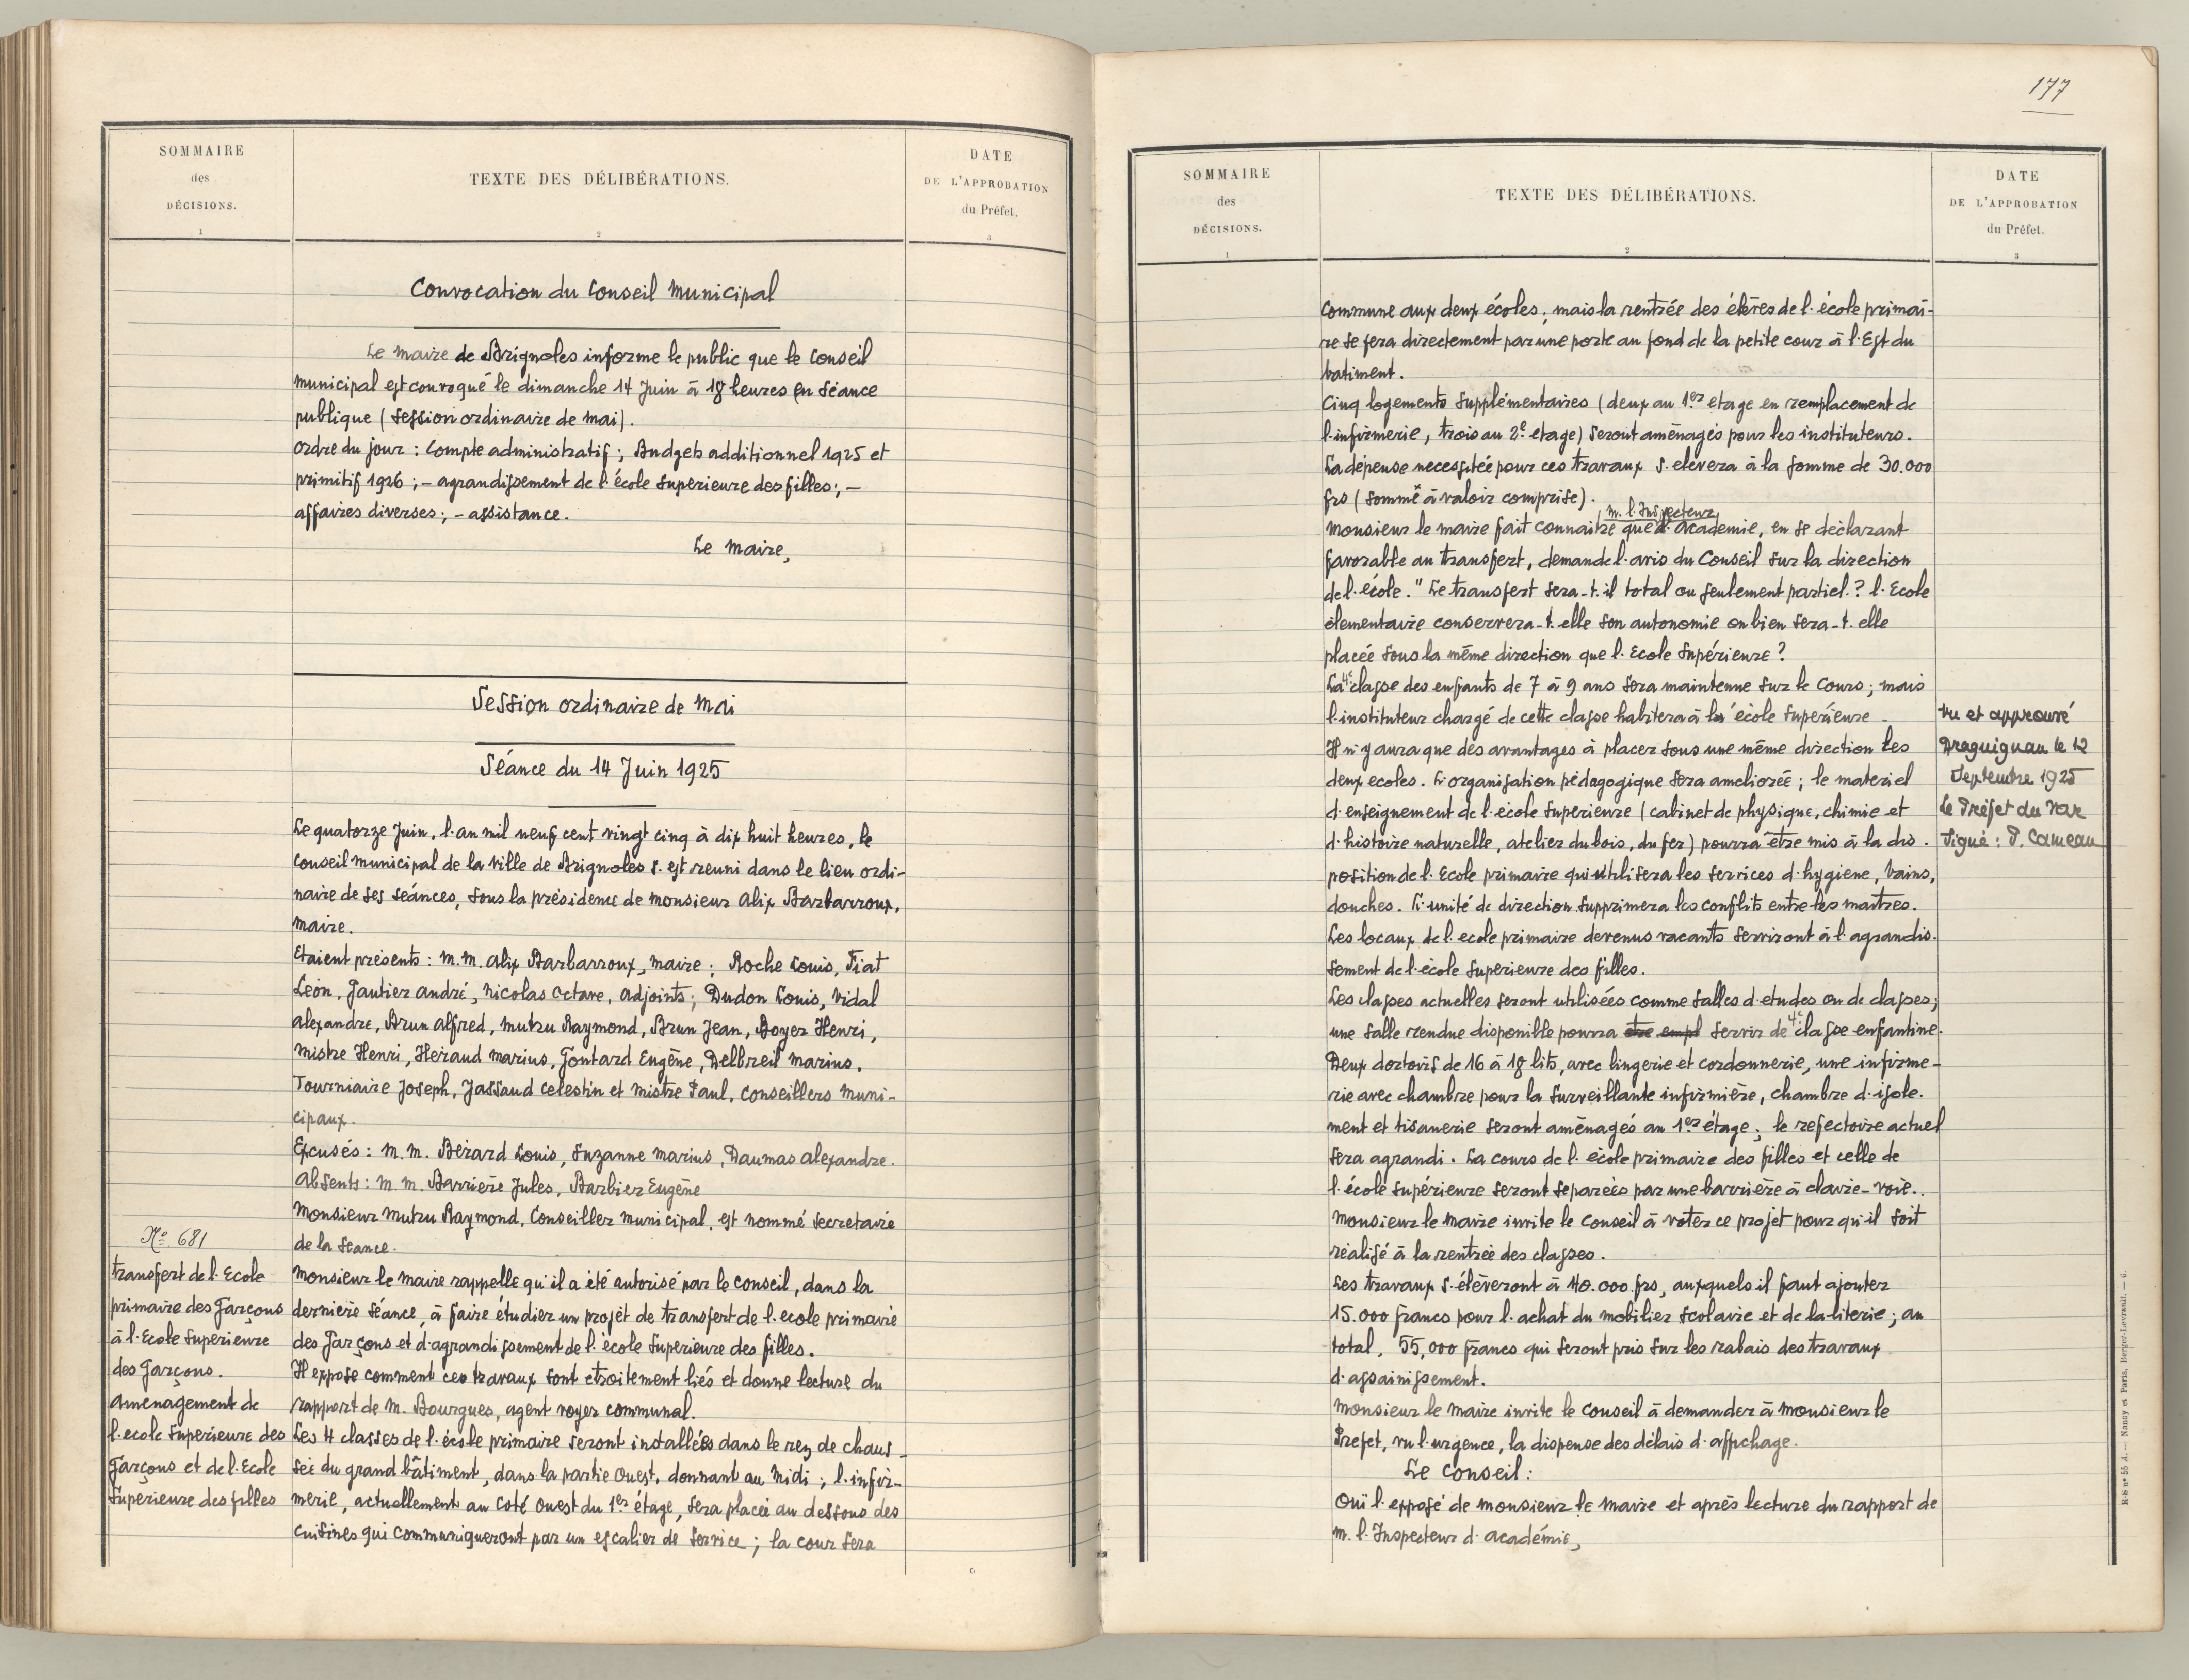 SOMMAIRE
des
DÉCISIONS.
1
TEXTE DES DÉLIBÉRATIONS.
2
DATE
DE L'APPROBATION
du Préfet.
3
Convocation du Conseil Municipal
Le Maire de Brignoles informe le public que le Conseil
Municipal est convoqué le dimanche 14 Juin à 18 heures en Séance
publique (Session ordinaire de Mai).
Ordre du jour : Compte administratif ; Budgets additionnel 1925 et
primitif 1926 ; – agrandissement de l'école Superieure des filles ; –
affaires diverses ; – assistance.
Le Maire,
Session ordinaire de Mai
Séance du 14 Juin 1925
Le quatorze Juin, l'an mil neuf cent vingt cinq à dix huit heures, le
Conseil Municipal de la Ville de Brignoles s'est réuni dans le lieu ordi-
naire de ses séances, sous la présidence de Monsieur Alix Barbarroux,
Maire.
Etaient présents : M.M. Alix Barbarroux, Maire ; Roche Louis, Fiat
Léon, Gautier André, Nicolas Octave, Adjoints ; Dudon Louis, Vidal
Alexandre, Brun Alfred, Mutzu Raymond, Brun Jean, Boyer Henri,
Mistre Henri, Héraud Marius, Gontard Eugène, Delbreil Marius,
Tourniaire Joseph, Jassaud Celestin et Mistre Paul, Conseillers Muni-
cipaux.
Excusés : M.M. Bérard Louis, Suzanne Marius, Daumas Alexandre.
Absents : M.M. Barrière Jules, Barbier Eugène
Monsieur Mutzu Raymond, Conseiller Municipal, est nommé Secretaire
de la Séance.
No 681
transfert de l'Ecole
primaire des Garçons
à l'Ecole Superieure
des Garçons.
Amènagement de
l'ecole Superieure des
Garçons et de l'Ecole
Superieure des filles
Monsieur le Maire rappelle qu'il a été autorisé par le Conseil, dans la
dernière Séance, à faire étudier un projet de transfert de l'ecole primaire
des Garçons et d'agrandissement de l'école Superieure des filles.
Il expose comment ces travaux sont etroitement liés et donne lecture du
rapport de M. Bourgues, agent voyer communal.
Les 4 classes de l'école primaire seront installées dans le rez de chaus-
sée du grand bâtiment, dans la partie Ouest, donnant au Midi ; l'infir-
merie, actuellement au coté Ouest du 1er étage, sera placée au dessous des
cuisines qui communiqueront par un escalier de Service ; la cour sera
177
SOMMAIRE
des
DÉCISIONS.
1
TEXTE DES DÉLIBÉRATIONS.
2
DATE
DE L'APPROBATION
du Préfet.
3
commune aux deux écoles ; mais la rentrée des élèves de l'école primai-
re se fera directement par une porte au fond de la petite cour à l'Est du
batiment.
Cinq logements Supplémentaires (deux au 1er etage en remplacement de
l'infirmerie, trois au 2e etage) seront aménagés pour les instituteurs.
La dépense necessitée pour ces travaux s'elevera à la somme de 30.000
frs (Somme à valoir comprise).
M. l'Inspecteur
Monsieur le Maire fait connaitre que d'Academie, en se déclarant
favorable au transfert, demande l'avis du Conseil sur la direction
de l'école. " Le transfert sera-t-il total ou seulement partiel ? l'Ecole
élementaire conservera-t-elle son autonomie ou bien sera-t-elle
placée sous la même direction que l'Ecole Supérieure ?
La 4e classe des enfants de 7 à 9 ans sera maintenue sur le Cours ; mais
l'instituteur chargé de cette classe habitera à l'école Superieure.
Il n'y aura que des avantages à placer sous une même direction les
deux ecoles. L'organisation pédagogique sera ameliorée ; le materiel
d'enseignement de l'école Superieure (cabinet de physique, chimie et
d'histoire naturelle, atelier du bois, du fer) pourra être mis à la dis-
position de l'Ecole primaire qui utilisera les services d'hygiene, bains,
douches. L'unité de direction supprimera les conflits entre les maitres.
Les locaux de l'ecole primaire devenus vacants serviront à l'agrandis-
sement de l'école Superieure des filles.
Les classes actuelles seront utilisées comme salles d'etudes ou de classes ;
une salle rendue disponible pourra etre empl servir de 4e classe enfantine.
Deux dortoirs de 16 à 18 lits, avec lingerie et cordonnerie, une infirme-
rie avec chambre pour la Surveillante infirmière, chambre d'isole-
ment et tisanerie seront aménagés au 1er étage ; le refectoire actuel
sera agrandi. La cours de l'école primaire des filles et celle de
l'école Supérieure seront separées par une barrière à claire-voie.
Monsieur le Maire invite le Conseil à voter ce projet pour qu'il soit
réalisé à la rentrée des classes.
Les travaux s'élèveront à 40.000 frs, auxquels il faut ajouter
15.000 francs pour l'achat du mobilier scolaire et de la literie ; au
total, 55,000 francs qui seront pris sur les rabais des travaux
d'assainissement.
Monsieur le Maire invite le Conseil à demander à Monsieur le
Prefet, vu l'urgence, la dispense des délais d'affichage.
Le Conseil :
Ouï l'exposé de Monsieur le Maire et après lecture du rapport de
M. l'Inspecteur d'Académie,
Vu et approuvé
Draguignan le 12
Septembre 1925
Le Préfet du Var
Signé : P. Cameau
R-S no 55 A. — Nancy et Paris, Berger-Levrault. — 6.